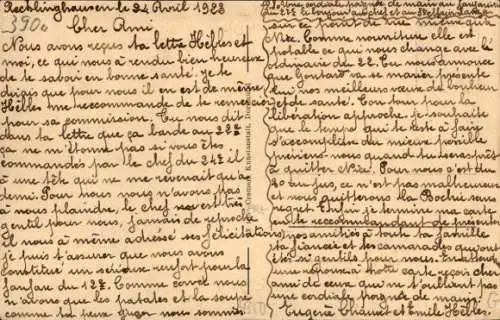 Recklinghausen le 24 Avril 1923
390e
Cher Ami
Nous avons reçus ta lettre Hébles et
moi, ce qui nous à rendu bien heureux
de te savoir en bonne santé. Je te
dirais que pour nous il en est de même
Hébles me recommande de te remercier
pour sa commission. Tu nous dit
dans ta lettre que ça barde au 23e
ça ne m'étonne pas si vous êtes
commandés par le chef du 24e il
à une tête qui ne me revenait qu'à
demi. Pour nous nous n'avons pas
à nous plaindre, le chef est très
gentil pour nous, jamais de reproche
Il nous à même adressé ses félicitations
je puis t'assurer que nous avons
constitué un sérieux renfort pour la
fanfare du 12e. Comme corvée nous
n'avons que les patates et la soupe
comme tu peux juger nous sommes
Nice. Comme nourriture elle est
potable ce qui nous change avec le
ordinaire du 22. Tu nous annonce
que Goutard va se marier présente
lui nos meilleurs vœux de bonheur
et de santé. Ton tour pour la
libération approche. Je souhaite
que le temps qui te reste à faire
s'accomplisse du mieux possible
à quitter Nice. Pour nous c'est du
30 au jus, ce n'est pas malheureux
et nous quitterons la Bochie sans
regret. Enfin je termine ma carte
en te recommandant de présenter
mes amitiés à toute ta famille
ta fiancée et les camarades qui ont
étés si gentils pour nous. En attendant
une réponse à notre carte reçois cher
ami de ceux qui ne t'oublient pas
une cordiale poignée de main.
Eugène Chauvet et Emile Hébles